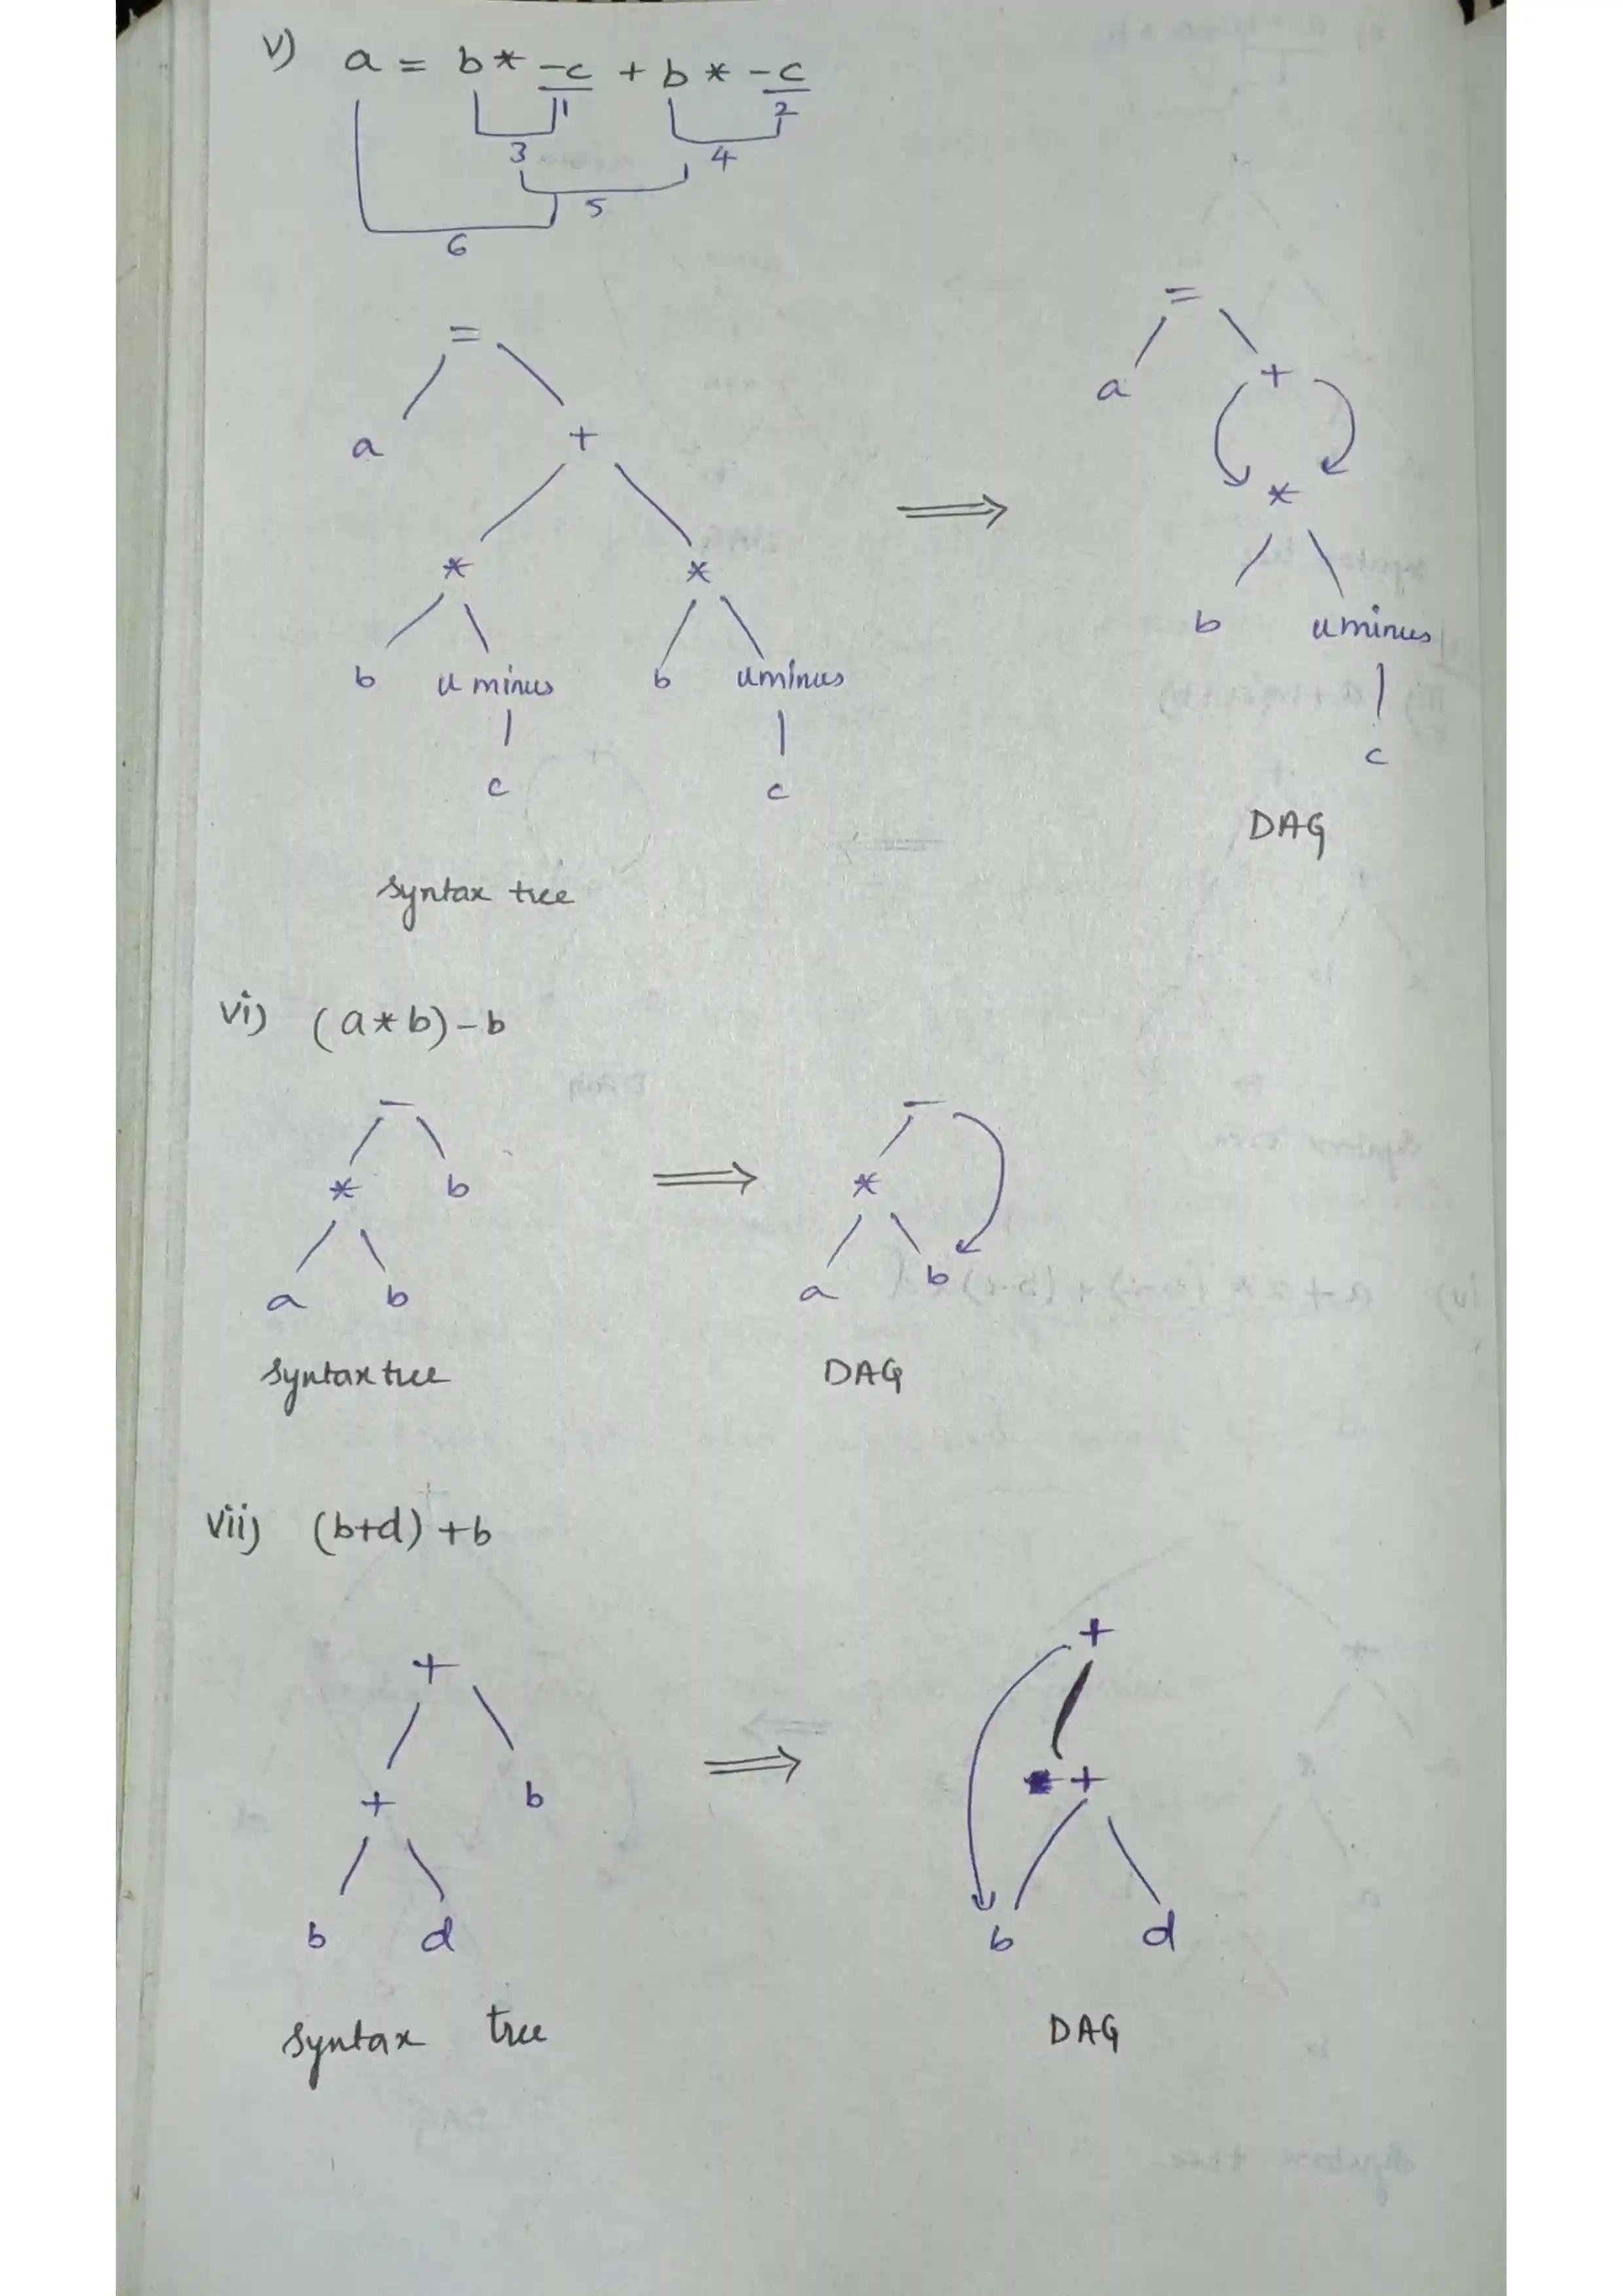 v) a = b * -c + b * -c
1 2
3 4
5
6
=
a +
* *
b uminus b uminus
c c
syntax tree
⟹
=
a +
*
b uminus
c
DAG
vi) (a*b)-b
-
* b
a b
syntax tree
⟹
-
*
a b
DAG
vii) (b+d)+b
+
+ b
b d
syntax tree
⟹
+
+
b d
DAG